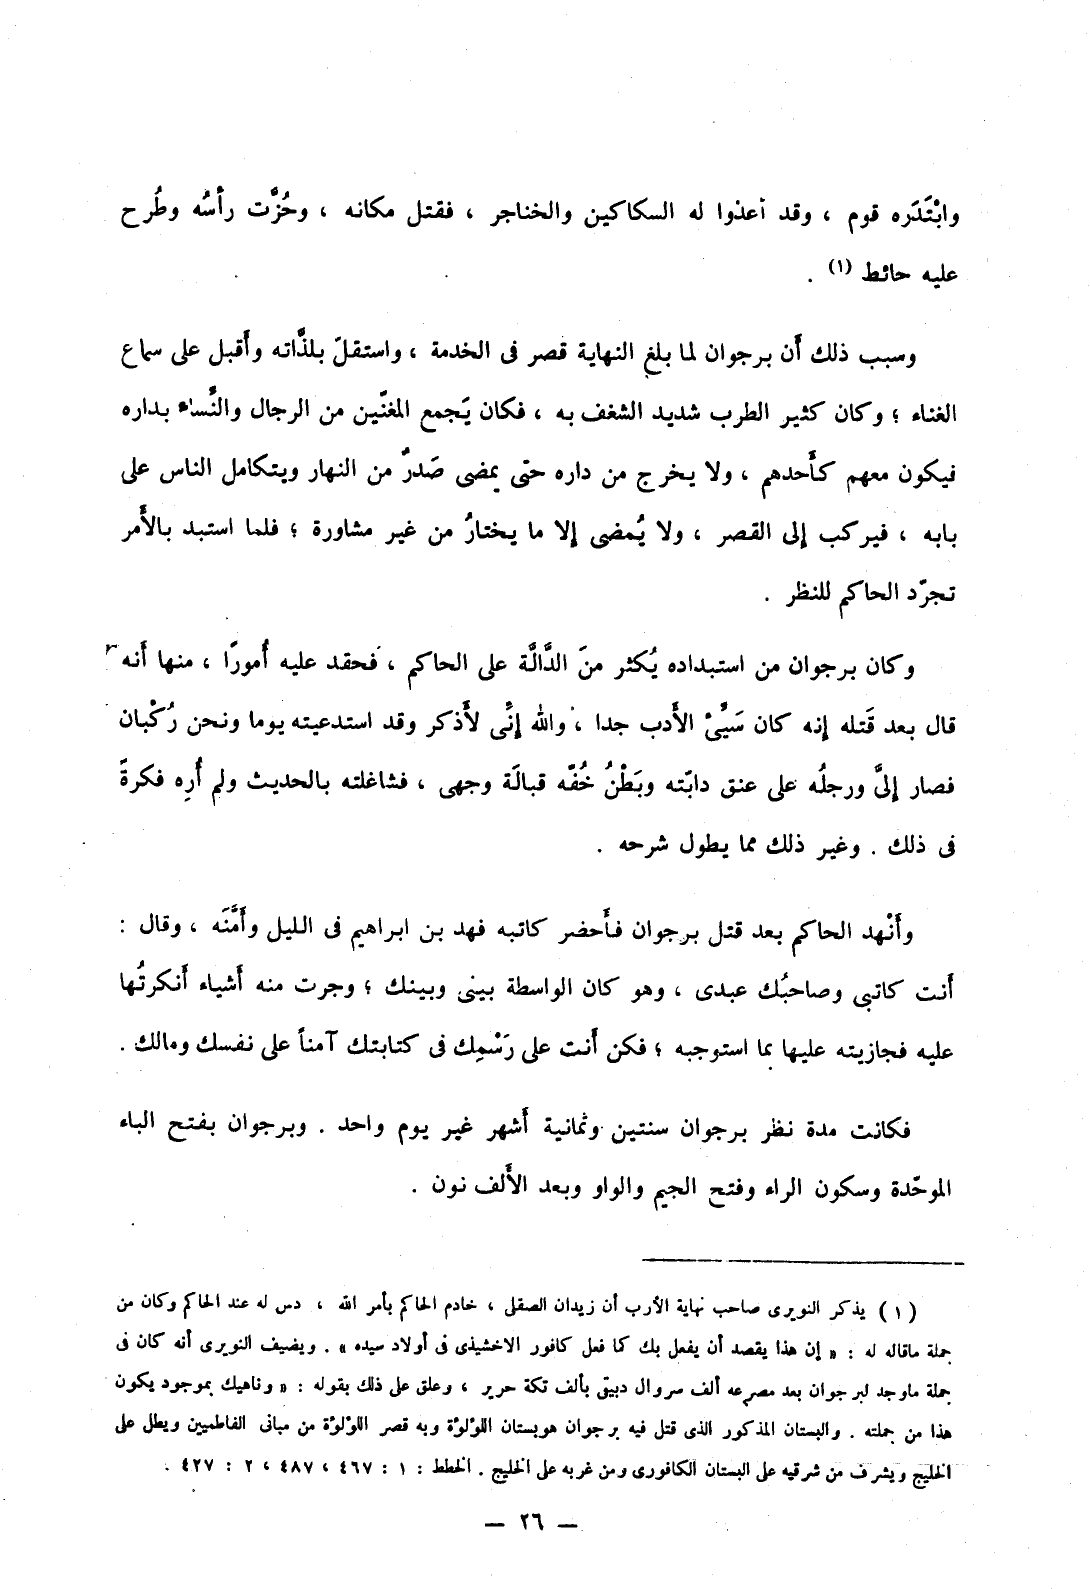 وابْتَدَره قوم ، وقد أعذوا له السكاكين والخناجر ، فقتل مكانه ، وحُزَّت رأسُه وطُرح
عليه حائط (١) .
وسبب ذلك أن برجوان لما بلغ النهاية قصر فى الخدمة ، واستقلّ بلذَّاته وأقبل على سماع
الغناء ؛ وكان كثير الطرب شديد الشغف به ، فكان يَجمع المغنّين من الرجال والنِّساء بداره
فيكون معهم كأَحدهم ، ولا يخرج من داره حتى يمضى صَدرٌ من النهار ويتكامل الناس على
بابه ، فيركب إلى القصر ، ولا يُمضى إلا ما يختارُ من غير مشاورة ؛ فلما استبد بالأَمر
تجرّد الحاكم للنظر .
وكان برجوان من استبداده يُكثر منَ الدَّالَّة على الحاكم ، فحقد عليه أُمورًا ، منها أَنه
قال بعد قَتله إنه كان سَيِّئ الأَدب جدا ، والله إنِّى لأَذكر وقد استدعيته يوما ونحن رُكْبان
فصار إلىَّ ورجلُه على عنق دابّته وبَطْنُ خُفّه قبالَة وجهى ، فشاغلته بالحديث ولم أُرِه فكرةً
فى ذلك . وغير ذلك مما يطول شرحه .
وأَنْهد الحاكم بعد قتل برجوان فأَحضر كاتبه فهد بن ابراهيم فى الليل وأَمَّنَه ، وقال :
أَنت كاتبى وصاحبُك عبدى ، وهو كان الواسطة بينى وبينك ؛ وجرت منه أَشياء أَنكرتُها
عليه فجازيته عليها بما استوجبه ؛ فكن أَنت على رَسْمِك فى كتابتك آمناً على نفسك ومالك .
فكانت مدة نظر برجوان سنتين وثمانية أَشهر غير يوم واحد . وبرجوان بفتح الباء
الموحّدة وسكون الراء وفتح الجيم والواو وبعد الأَلف نون .
(١) يذكر النويرى صاحب نهاية الأرب أن زيدان الصقلى ، خادم الحاكم بأمر الله ، دس له عند الحاكم وكان من
جملة ماقاله له : « إن هذا يقصد أن يفعل بك كما فعل كافور الاخشيذى فى أولاد سيده » . ويضيف النويرى أنه كان فى
جملة ماوجد لبرجوان بعد مصرعه ألف سروال دبيقى بألف تكة حرير ، وعلق على ذلك بقوله : « وناهيك بموجود يكون
هذا من جملته . والبستان المذكور الذى قتل فيه برجوان هوبستان اللؤلوة وبه قصر اللؤلوة من مبانى الفاطميين ويطل على
الخليج ويشرف من شرقيه على البستان الكافورى ومن غربه على الخليج . الخطط : ١ : ٤٦٧ ، ٤٨٧ ، ٢ : ٤٢٧ .
— ٢٦ —